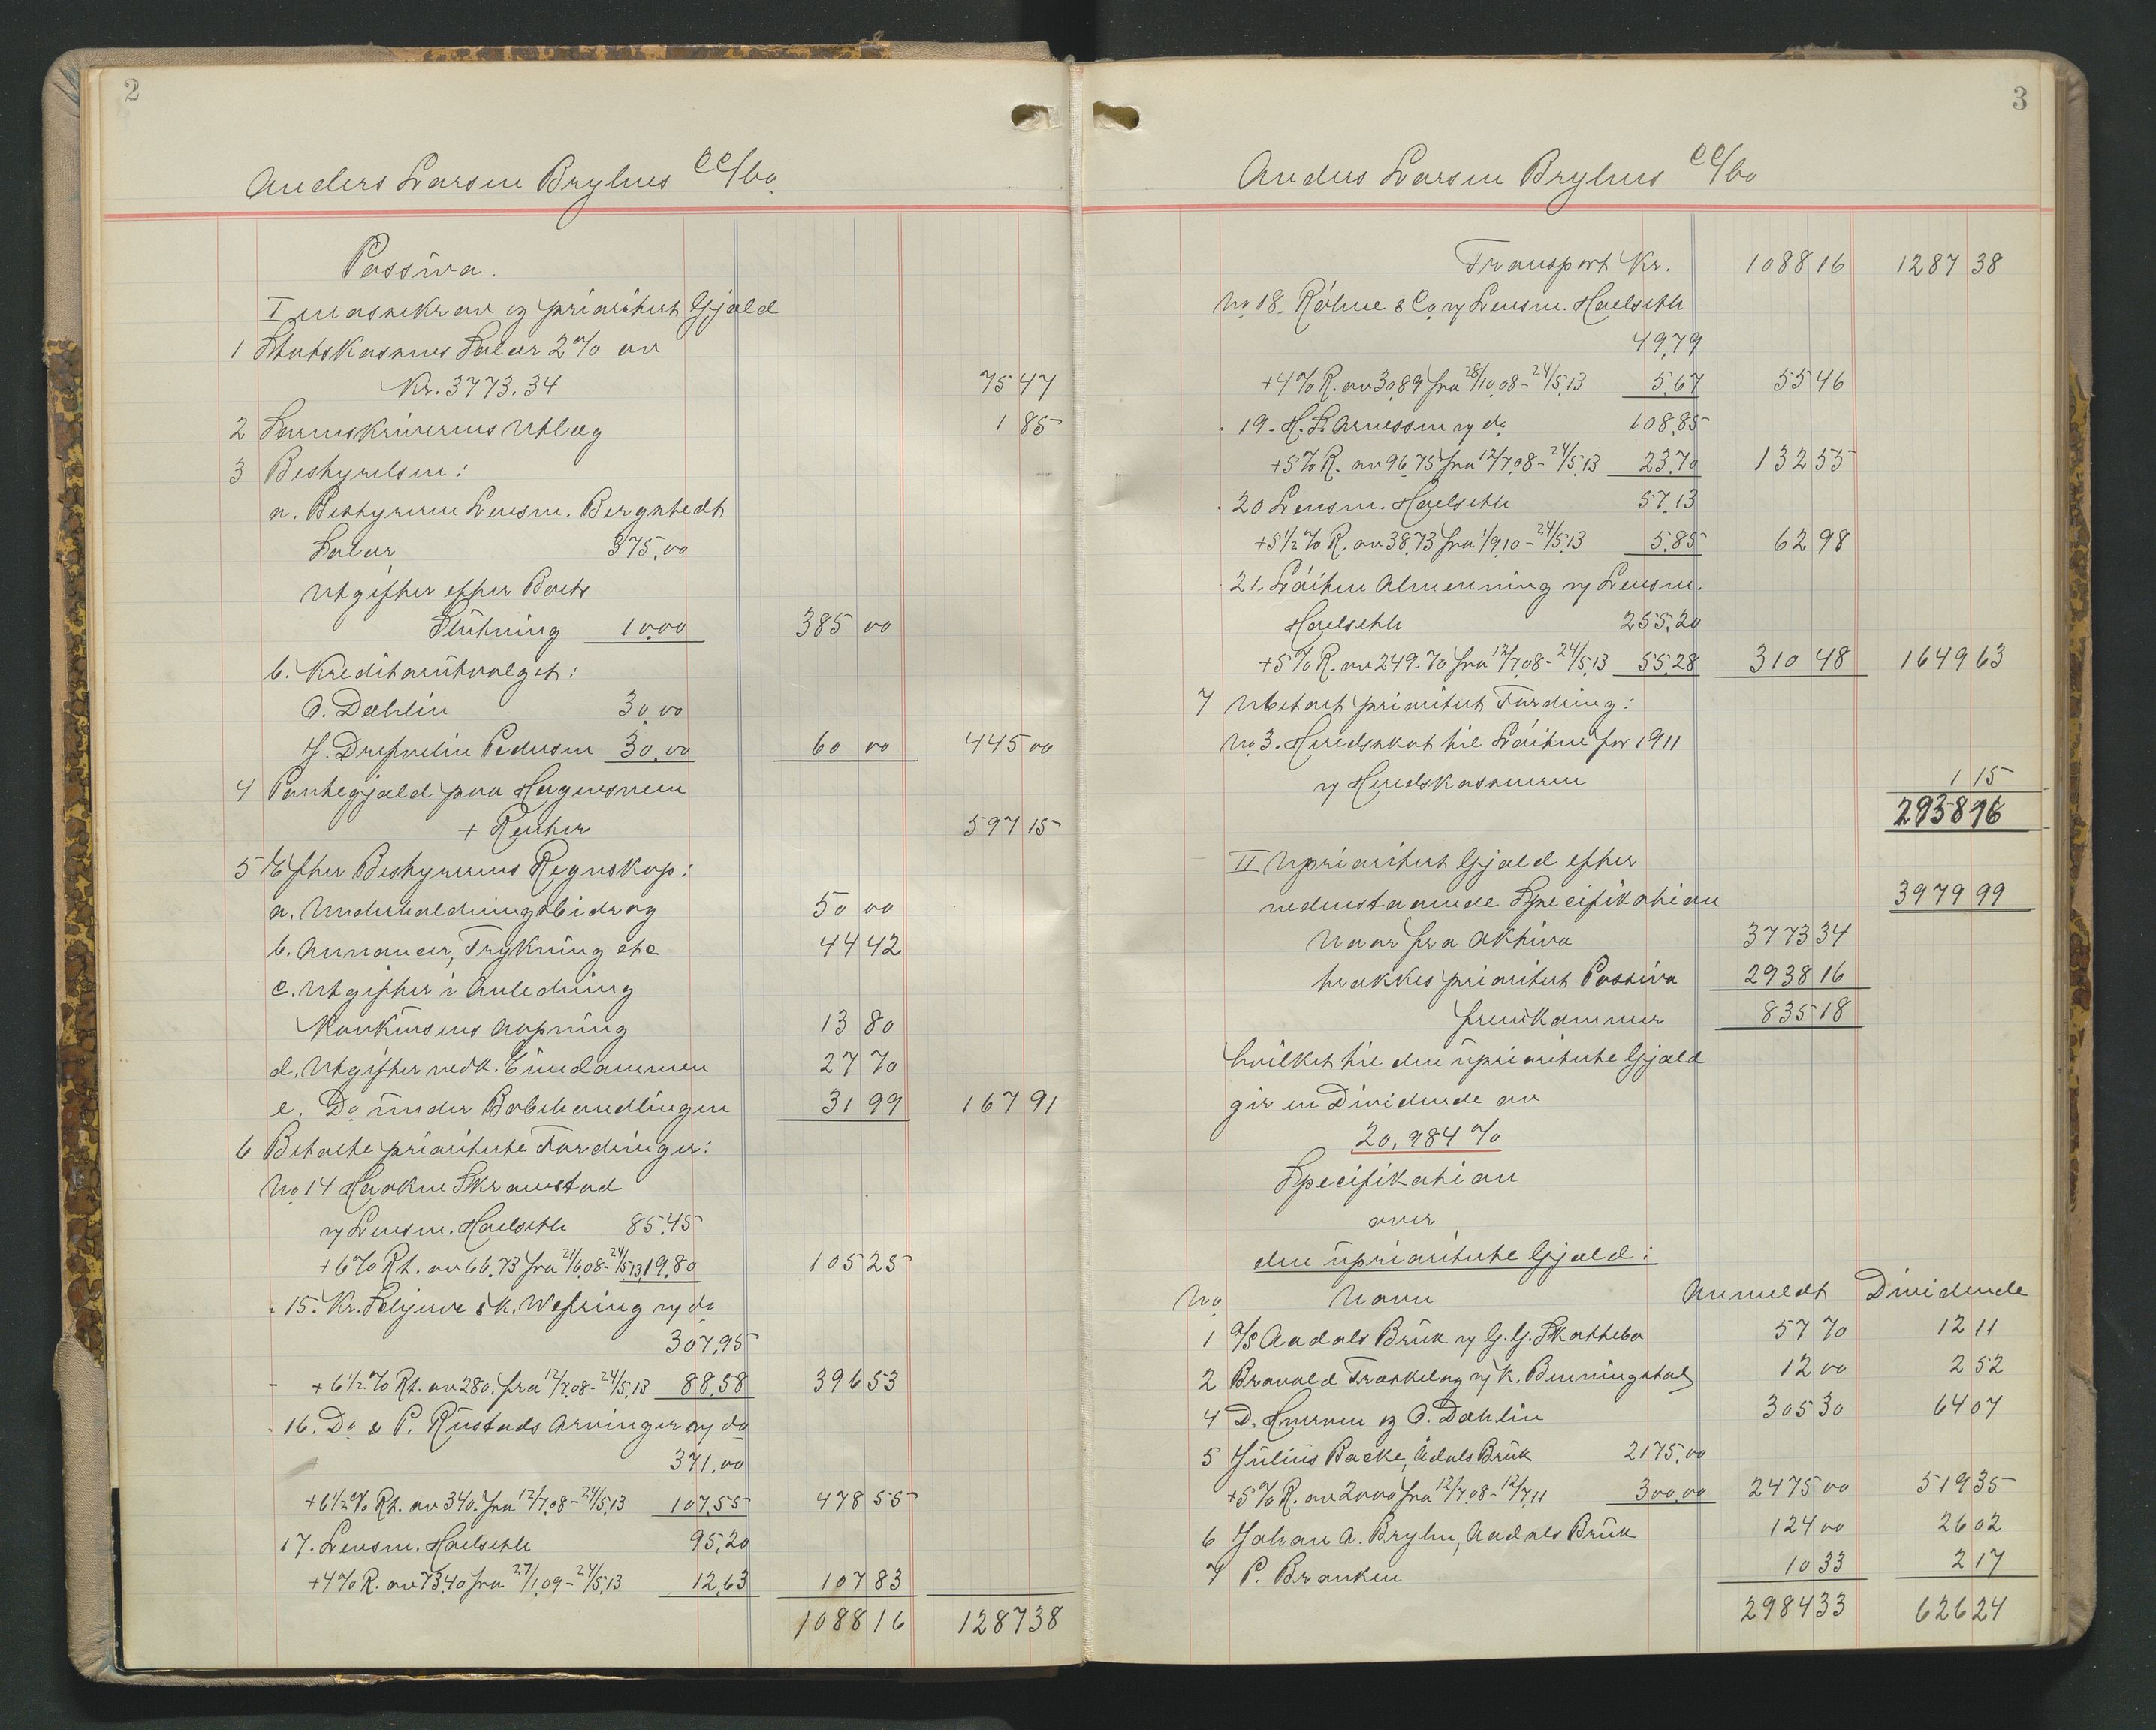 2
Anders Larsen Bryhns CC/bo.
Passiva.
I masnekrav og prioritert Gjæld
1 Statskassens Salær 2% av
Kr. 3773.34 75 47
2 Sorenskriverens Utlæg 1 85
3 Bestyrelsen:
a. Bestyreren Lensm. Bergstedt
Salær 375,00
Utgifter efter Boets
Slutning 10,00 385 00
b. Kreditorutvalget:
O. Dæhlin 30,00
J. Drefvelin Pedersen 30,00 60 00 445 00
4 Pantegjæld paa Hagensveen
+ Renter 597 15
5 Efter Bestyrerens Regnskap:
a. Underholdningsbidrag 50 00
b. Annoncer, Trykning etc 44 42
c. Utgifter i Anledning
Konkursens Aapning 13 80
d. Utgifter vedk. Eiendommen 27 70
e. Do under Bobehandlingen 31 99 167 91
6 Betalte prioriterte Fordringer:
No 14 Haakon Skramstad
v/ Lensm. Hoelseth 85,45
+6% Rt. av 66,73 fra 21/6,08-24/5,13 19,80 105 25
" 15. Kr. Seljuve & K. Wefring v/ do
307,95
+6½% Rt. av 280. fra 12/7,08-24/5,13 88,58 396 53
" 16. Do & P. Rustads Arvinger v/ do
371,00
+6½% Rt. av 340. fra 12/7,08-24/5,13 107,55 478 55
17. Lensm. Hoelseth 95,20
+4% R. av 73,40 fra 27/1,09-24/5,13 12,63 107 83
1088 16 1287 38
3
Anders Larsen Bryhns CC/bo
Transport Kr. 1088 16 1287 38
No 18. Røhne & Co. v/ Lensm. Hoelseth
49,79
+4% R. av 30,89 fra 28/10,08-24/5,13 5,67 55 46
" 19. H. L. Arnessen v/ do 108,85
+5% R. av 96,75 fra 12/7,08-24/5,13 23,70 132 55
" 20 Lensm. Hoelseth 57,13
+5½% R. av 38,73 fra 1/9,10-24/5,13 5,85 62 98
" 21. Løiten Almenning v/ Lensm.
Hoelseth 255,20
+5% R. av 249.70 fra 12/7,08-24/5,13 55,28 310 48 1649 63
7 Ubetalt prioritert Fordring:
No 3. Heredsskat til Løiten for 1911
v/ Heredskasseren 1 15
2938 16
II Uprioritert Gjæld efter
nedenstaaende Specifikation 3979 99
Naar fra Aktiva 3773 34
trækkes prioritert Passiva 2938 16
fremkommer 835 18
hvilket til den uprioriterte Gjæld
gir en Dividende av
20,984 %
Specifikation
over
den uprioriterte Gjæld:
No Navn Anmeldt Dividende
1 A/S Aadals Bruk v/ G. G. Skattebo 57 70 12 11
2 Bravold Træskelag v/ K. Benningstad 12 00 2 52
4 D. Hverven og O. Dæhlin 305 30 64 07
5 Julius Backe, Ådals Bruk 2175,00
+5% R. av 2000 fra 12/7,08-12/7,11 300,00 2475 00 519 35
6 Johan A. Bryhn, Aadals Bruk 124 00 26 02
7 P. Branken 10 33 2 17
2984 33 626 24